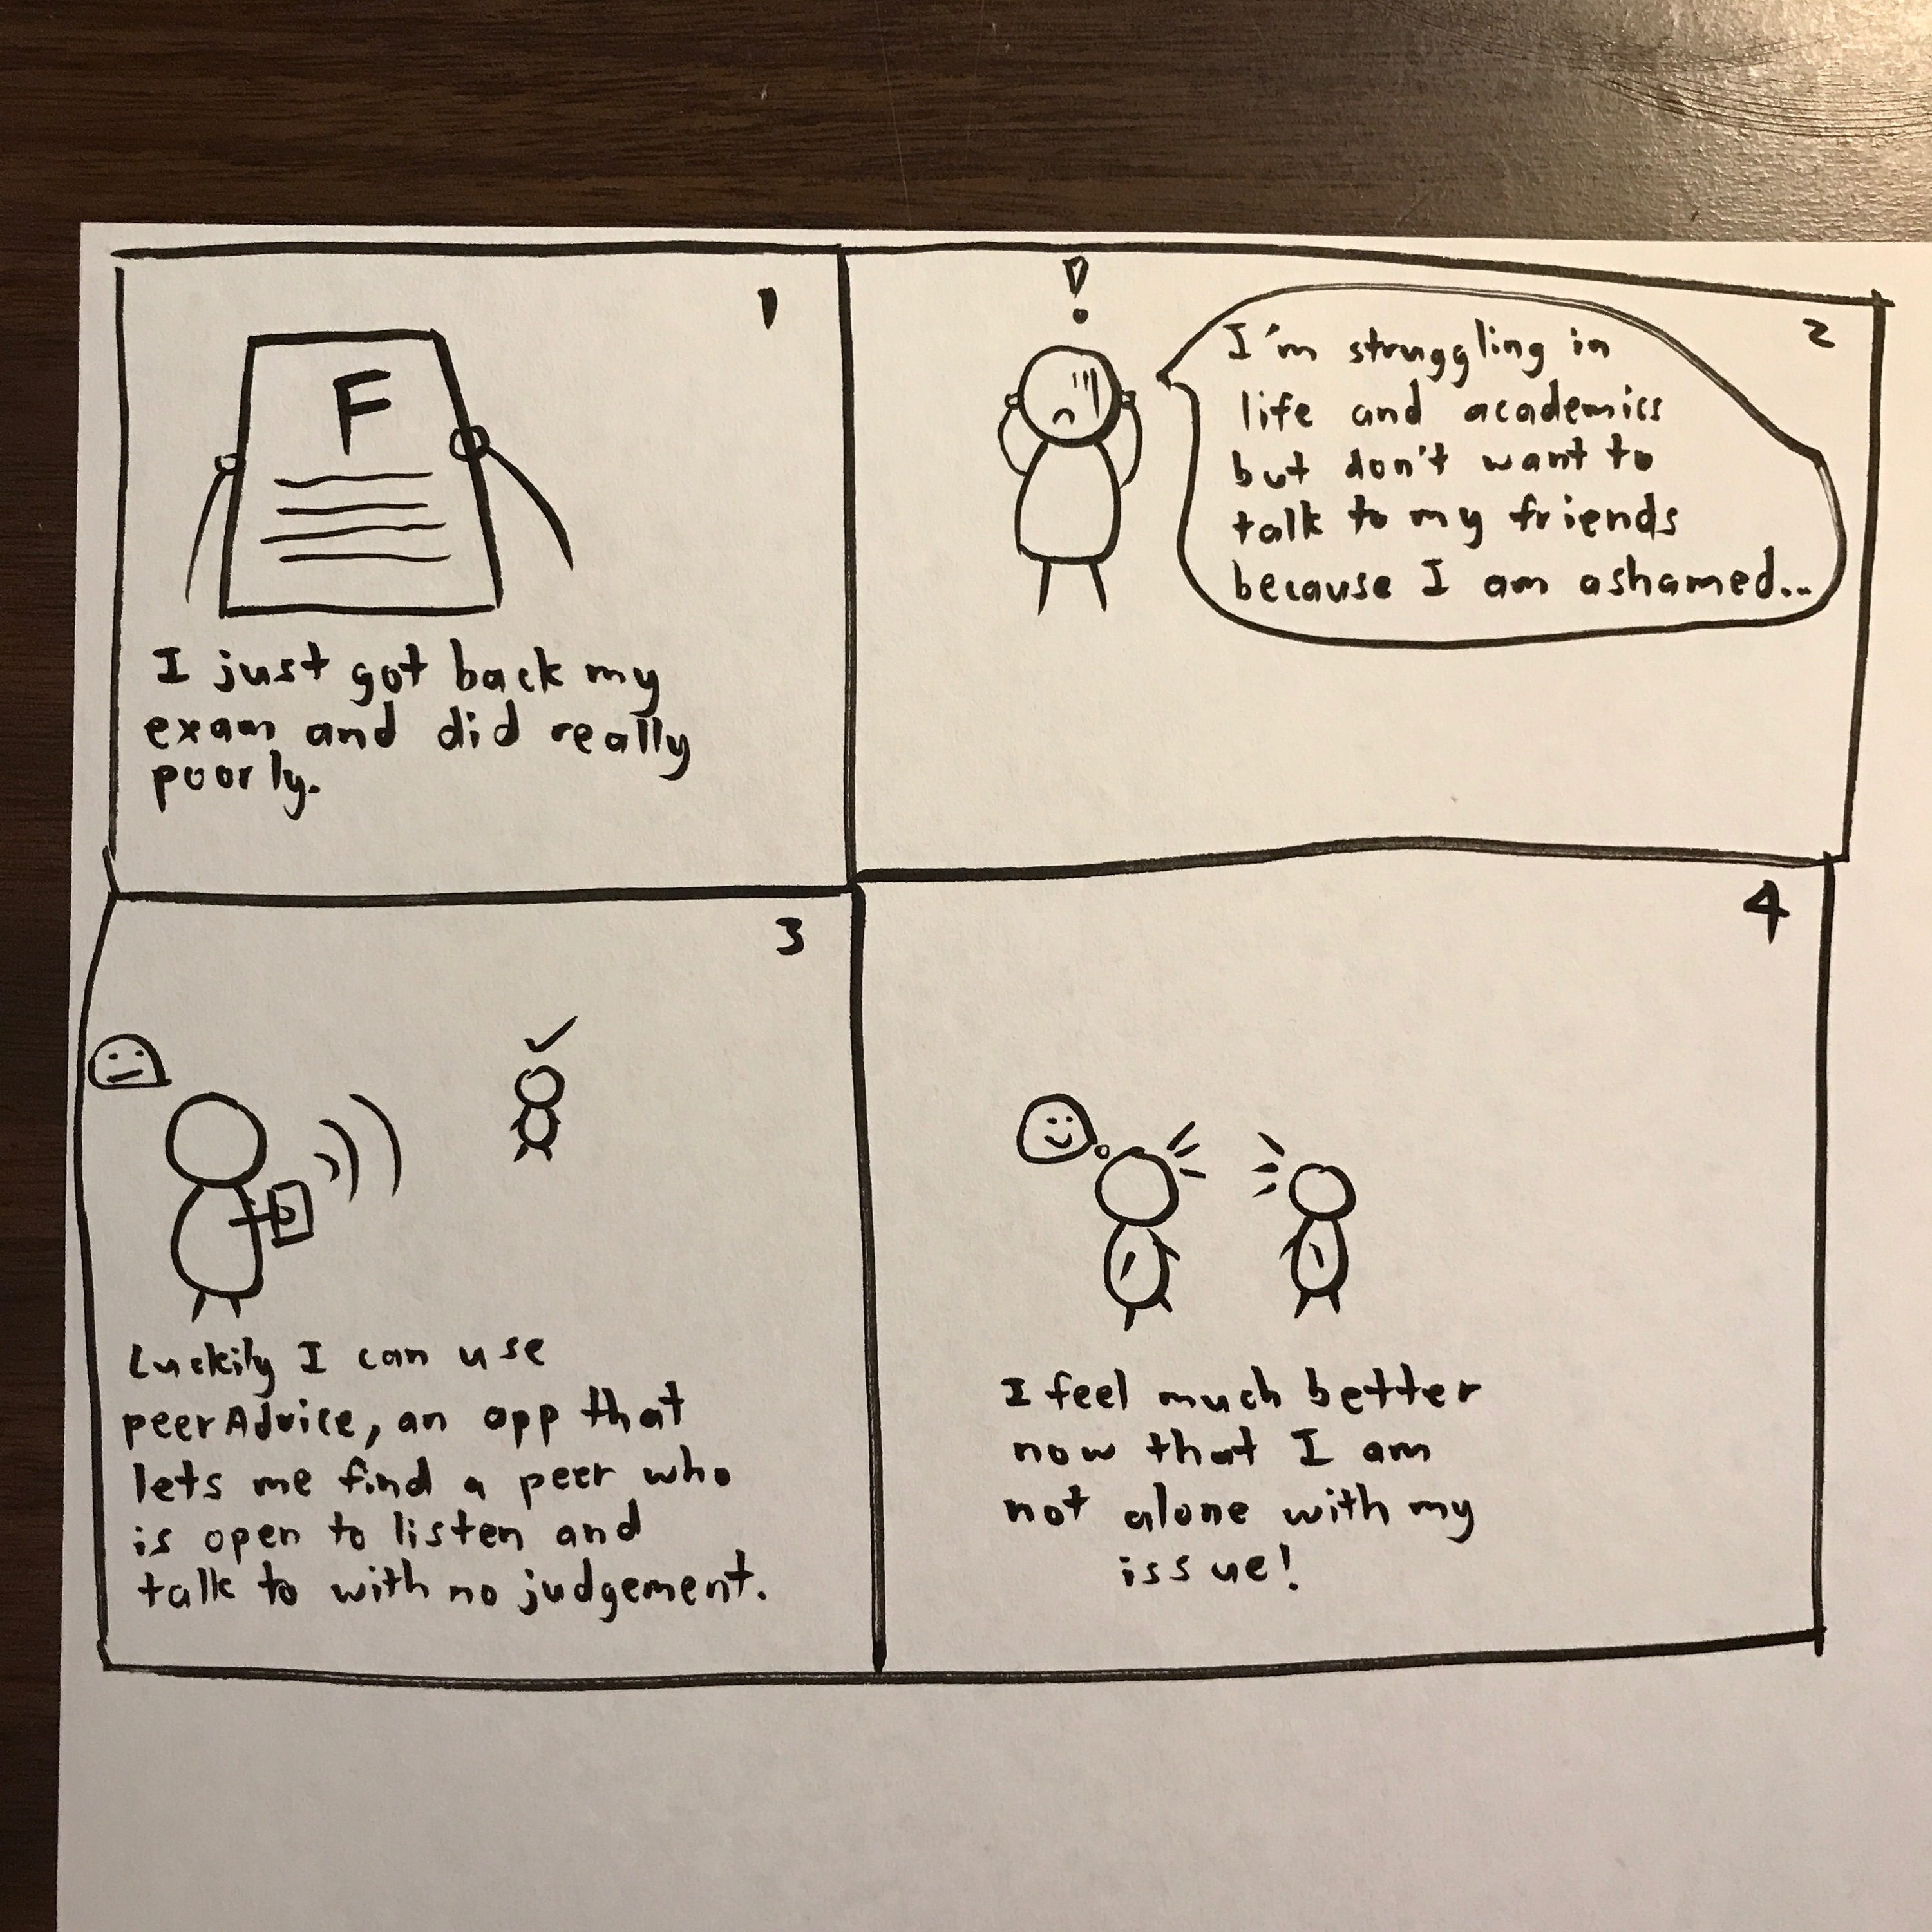 1
F
I just got back my
exam and did really
poorly.
2
!
I'm struggling in
life and academics
but don't want to
talk to my friends
because I am ashamed...
3
Luckily I can use
peerAdvice, an app that
lets me find a peer who
is open to listen and
talk to with no judgement.
4
I feel much better
now that I am
not alone with my
issue!